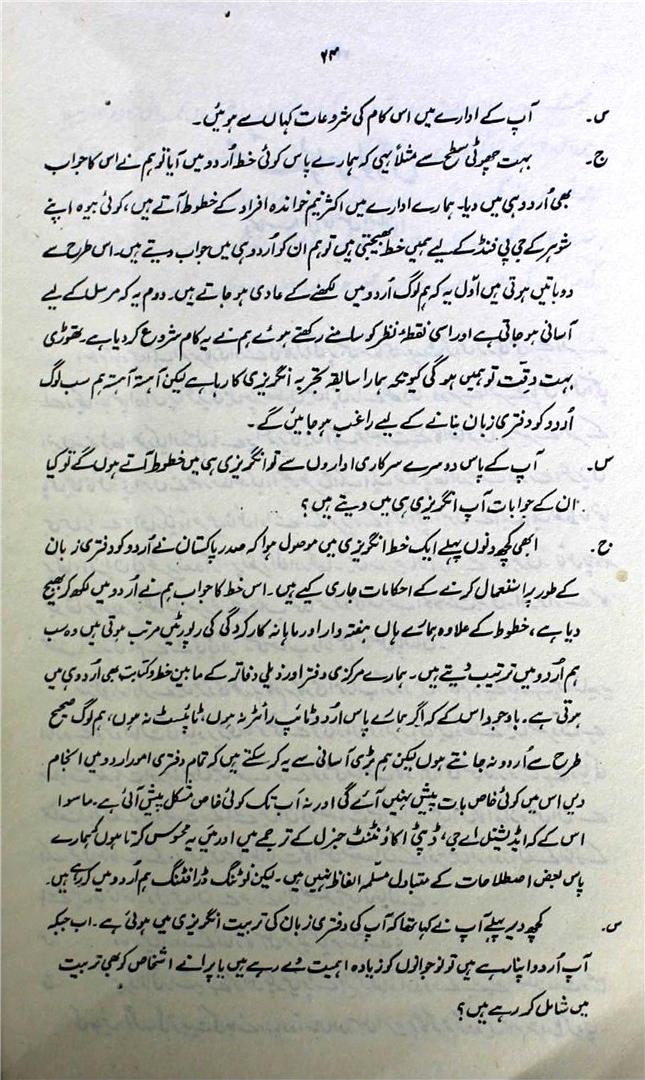 ۶۴
س۔ آپ کے ادارے میں اس کام کی شروعات کہاں سے ہوئیں۔
ج۔ بہت چھوٹی سطح سے مثلاً یہی کہ ہمارے پاس کوئی خط اُردو میں آیا تو ہم نے اس کا جواب
بھی اُردو ہی میں دیا۔ ہمارے ادارے میں اکثر نیم خواندہ افراد کے خطوط آتے ہیں، کوئی بیوہ اپنے
شوہر کے جی پی فنڈ کے لیے ہمیں خط بھیجتی ہیں تو ہم ان کو اُردو ہی میں جواب دیتے ہیں۔ اس طرح سے
دو باتیں ہوتی ہیں اوّل یہ کہ ہم لوگ اُردو میں لکھنے کے عادی ہو جاتے ہیں۔ دوم یہ کہ مرسل کے لیے
آسانی ہو جاتی ہے اور اسی نقطۂ نظر کو سامنے رکھتے ہوئے ہم نے یہ کام شروع کر دیا ہے۔ تھوڑی
بہت دقت تو ہمیں ہو گی کیونکہ ہمارا سابقہ تجربہ انگریزی کا رہا ہے لیکن آہستہ آہستہ ہم سب لوگ
اُردو کو دفتری زبان بنانے کے لیے راغب ہو جائیں گے۔
س۔ آپ کے پاس دوسرے سرکاری اداروں سے تو انگریزی ہی میں خطوط آتے ہوں گے تو کیا
ان کے جوابات آپ انگریزی ہی میں دیتے ہیں؟
ج۔ ابھی کچھ دنوں پہلے ایک خط انگریزی میں موصول ہوا کہ صدر پاکستان نے اُردو کو دفتری زبان
کے طور پر استعمال کرنے کے احکامات جاری کیے ہیں۔ اس خط کا جواب ہم نے اُردو میں لکھ کر بھیج
دیا ہے، خطوط کے علاوہ ہمارے ہاں ہفتہ دار اور ماہانہ کارکردگی کی رپورٹیں مرتب ہوتی ہیں وہ سب
ہم اُردو میں ترتیب دیتے ہیں۔ ہمارے مرکزی دفتر اور ذیلی دفاتر کے مابین خط و کتابت بھی اُردو ہی میں
ہوتی ہے۔ باوجود اس کے کہ اگر ہمارے پاس اُردو ٹائپ رائٹر نہ ہوں، ٹائپسٹ نہ ہوں، ہم لوگ صحیح
طرح سے اُردو نہ جانتے ہوں لیکن ہم بڑی آسانی سے یہ کر سکتے ہیں کہ تمام دفتری امور اردو میں انجام
دیں اس میں کوئی خاص بات پیش نہیں آئے گی اور نہ اب تک کوئی خاص مشکل پیش آئی ہے۔ ماسوا
اس کے کہ ایڈیشنل اے جی، ڈپٹی اکاؤنٹنٹ جنرل کے ترجمے میں اور میں یہ محسوس کرتا ہوں کہ ہمارے
پاس بعض اصطلاحات کے متبادل مسلّمہ الفاظ نہیں ہیں۔ لیکن نوٹنگ ڈرافٹنگ ہم اُردو میں کر رہے ہیں۔
س۔ کچھ دیر پہلے آپ نے کہا تھا کہ آپ کی دفتری زبان کی تربیت انگریزی میں ہوئی ہے۔ اب جبکہ
آپ اُردو اپنا رہے ہیں تو نوجوانوں کو زیادہ اہمیت دے رہے ہیں یا پرانے اشخاص کو بھی تربیت
میں شامل کر رہے ہیں؟